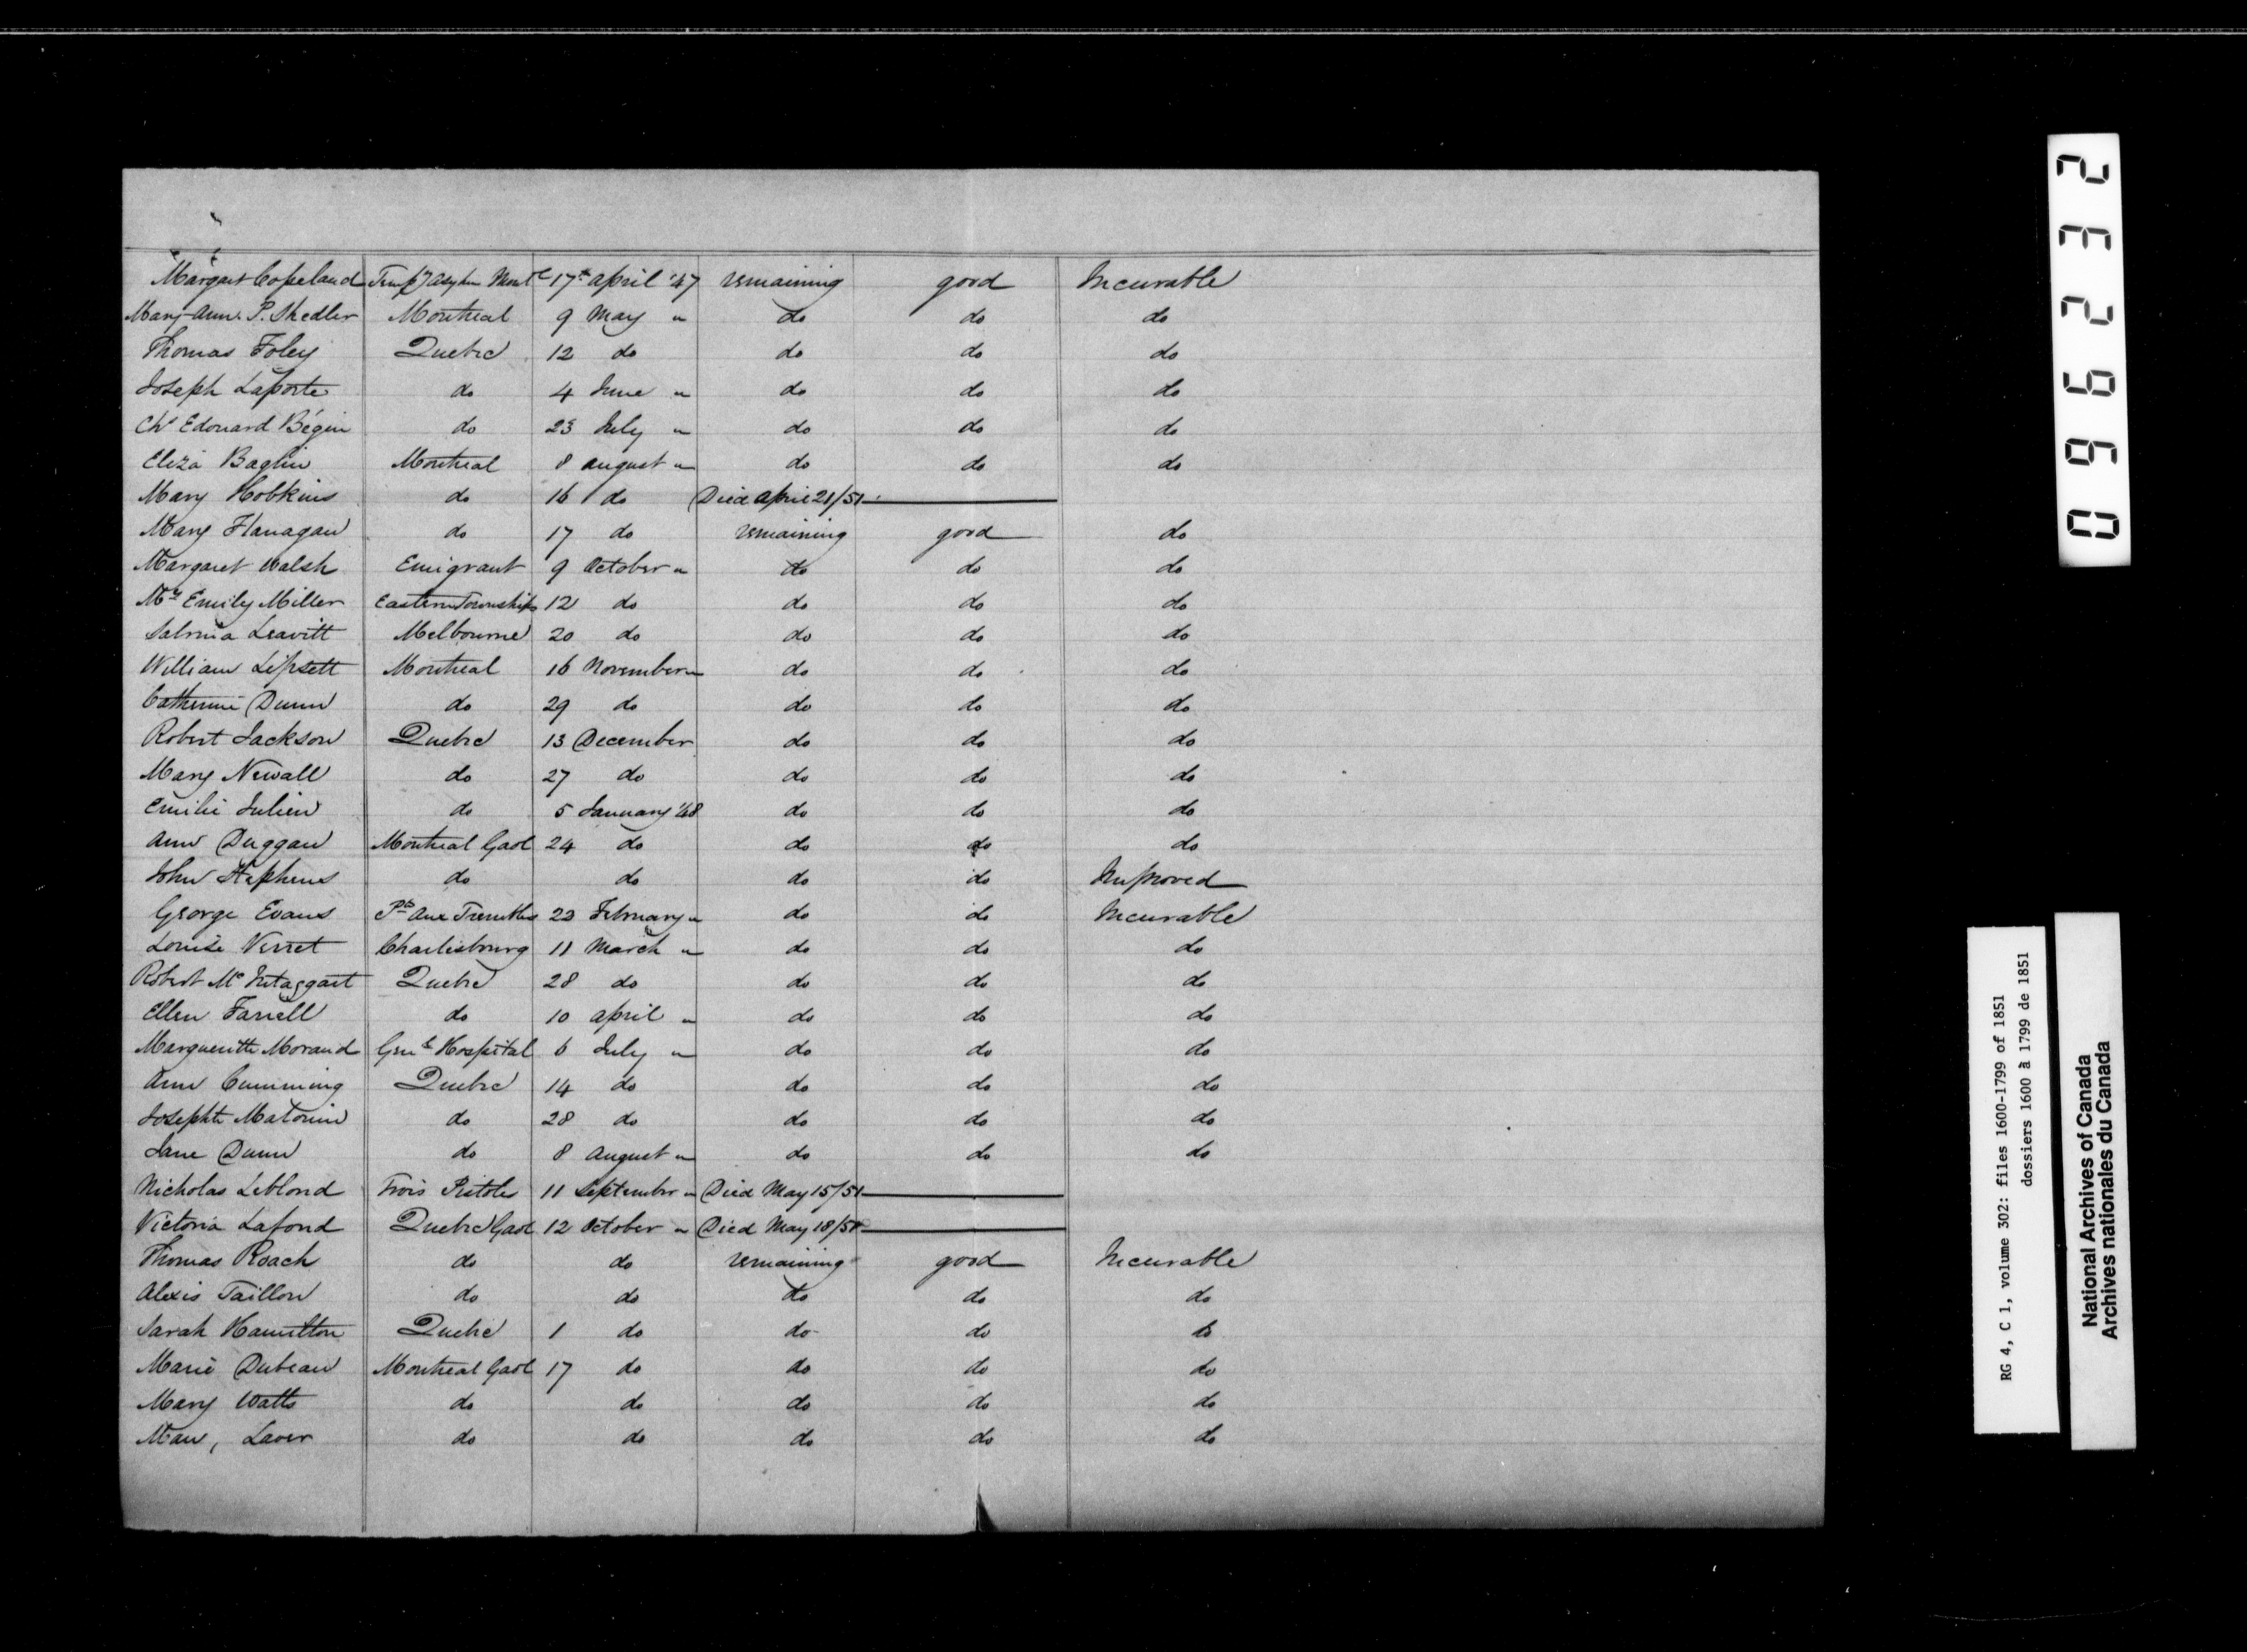 Margaret Copeland Tempy Asylum Montl 17th April '47 remaining good Incurable
Mary-Ann P. Shedler Montreal 9 May " do do do
Thomas Foley Quebec 12 do do do do
Joseph Laporte do 4 June " do do do
Chs Edouard Bégin do 23 July " do do do
Eliza Baglin Montreal 8 August " do do do
Mary Hobkins do 16 do Died April 21/51
Mary Flanagan do 17 do remaining good do
Margaret Walsh Emigrant 9 October " do do do
Mrs Emily Miller Eastern Townships 12 do do do do
Sabrina Leavitt Melbourne 20 do do do do
William Lipsett Montreal 16 November " do do do
Catherine Dunn do 29 do do do do
Robert Jackson Quebec 13 December do do do
Mary Newall do 27 do do do do
Emilie Julien do 5 January '48 do do do
Ann Duggan Montreal Gaol 24 do do do do
John Stephens do do do do Improved
George Evans Pte aux Trembles 23 February " do do Incurable
Louise Verret Charlesbourg 11 March " do do do
Robert Mc Intaggart Quebec 28 do do do do
Ellen Farrell do 10 April " do do do
Marguerite Morand Genl Hospital 6 July " do do do
Ann Cumming Quebec 14 do do do do
Josephte Matourin do 28 do do do do
Jane Dunn do 8 August " do do do
Nicholas Leblond Trois Pistoles 11 September " Died May 15/51
Victoria Lafond Quebec Gaol 12 October " Died May 18/51
Thomas Roach do do remaining good Incurable
Alexis Taillon do do do do do
Sarah Hamilton Quebec 1 do do do do
Marie Dubeau Montreal Gaol 17 do do do do
Mary Watts do do do do do
Man, Laver do do do do do
096232
RG 4, C 1, volume 302: files 1600-1799 of 1851
dossiers 1600 à 1799 de 1851
National Archives of Canada
Archives nationales du Canada